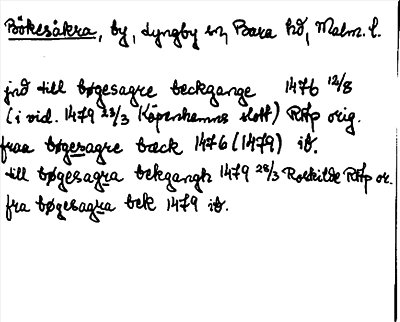 Bökesåkra, by, Lyngby sn, Bara hd, Malm. l.
jnd till bøgesagre beckgange 1476 12/8
(i vid. 1479 28/3 Köpenhamns slott) RAp orig.
fraa bøgesagre back 1476 (1479) ib.
till bøgesagra bekgangh 1479 28/3 Roskilde RAp or.
fra bøgesagra bek 1479 ib.